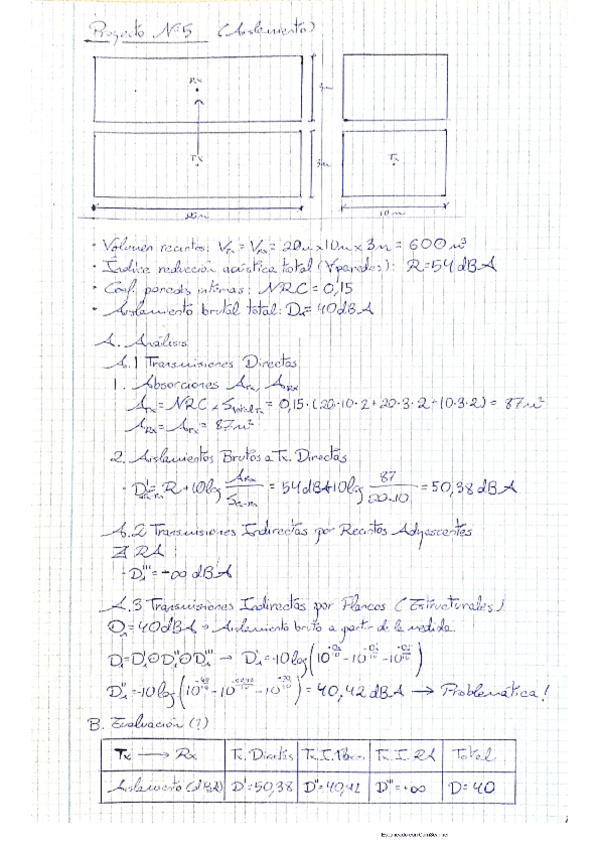 Proyecto Nº5 (Aislamiento)
Rx
3m
Tx
Tx
20m
10m
· Volumen recintos: VTx = VRx = 20m x 10m x 3m = 600 m³
· Índice reducción acústica total (∀paredes): R=54 dBA
· Coef. paredes internas: NRC = 0,15
· Aislamiento brutal total: DA = 40 dBA
A. Análisis
A.1 Transmisiones Directas
1. Absorciones ATx, ARx
ATx = NRC · = 0,15 · (20·10·2 + 20·3·2 + 10·3·2) = 87 m²
ARx = ATx = 87 m²
2. Aislamientos Brutos a Tx. Directas
· D'A = R + 10log ARx / STx-Rx = 54 dBA + 10log 87 / 20·10 = 50,38 dBA
A.2 Transmisiones Indirectas por Recintos Adyacentes
∄ RA
· D'''A = +∞ dBA
A.3 Transmisiones Indirectas por Flancos (Estructurales)
DA = 40 dBA → Aislamiento bruto a partir de la medida.
D''A = -10log(10 - 10 - 10) = 40,42 dBA → Problemática!
B. Evaluación (?)
Tx → Rx Tx. Directas Tx. I. Tx. I. RA Total
Aislamiento (dBA) D'=50,38 D''=40,42 D'''=+∞ D=40
Escaneado con CamScanner